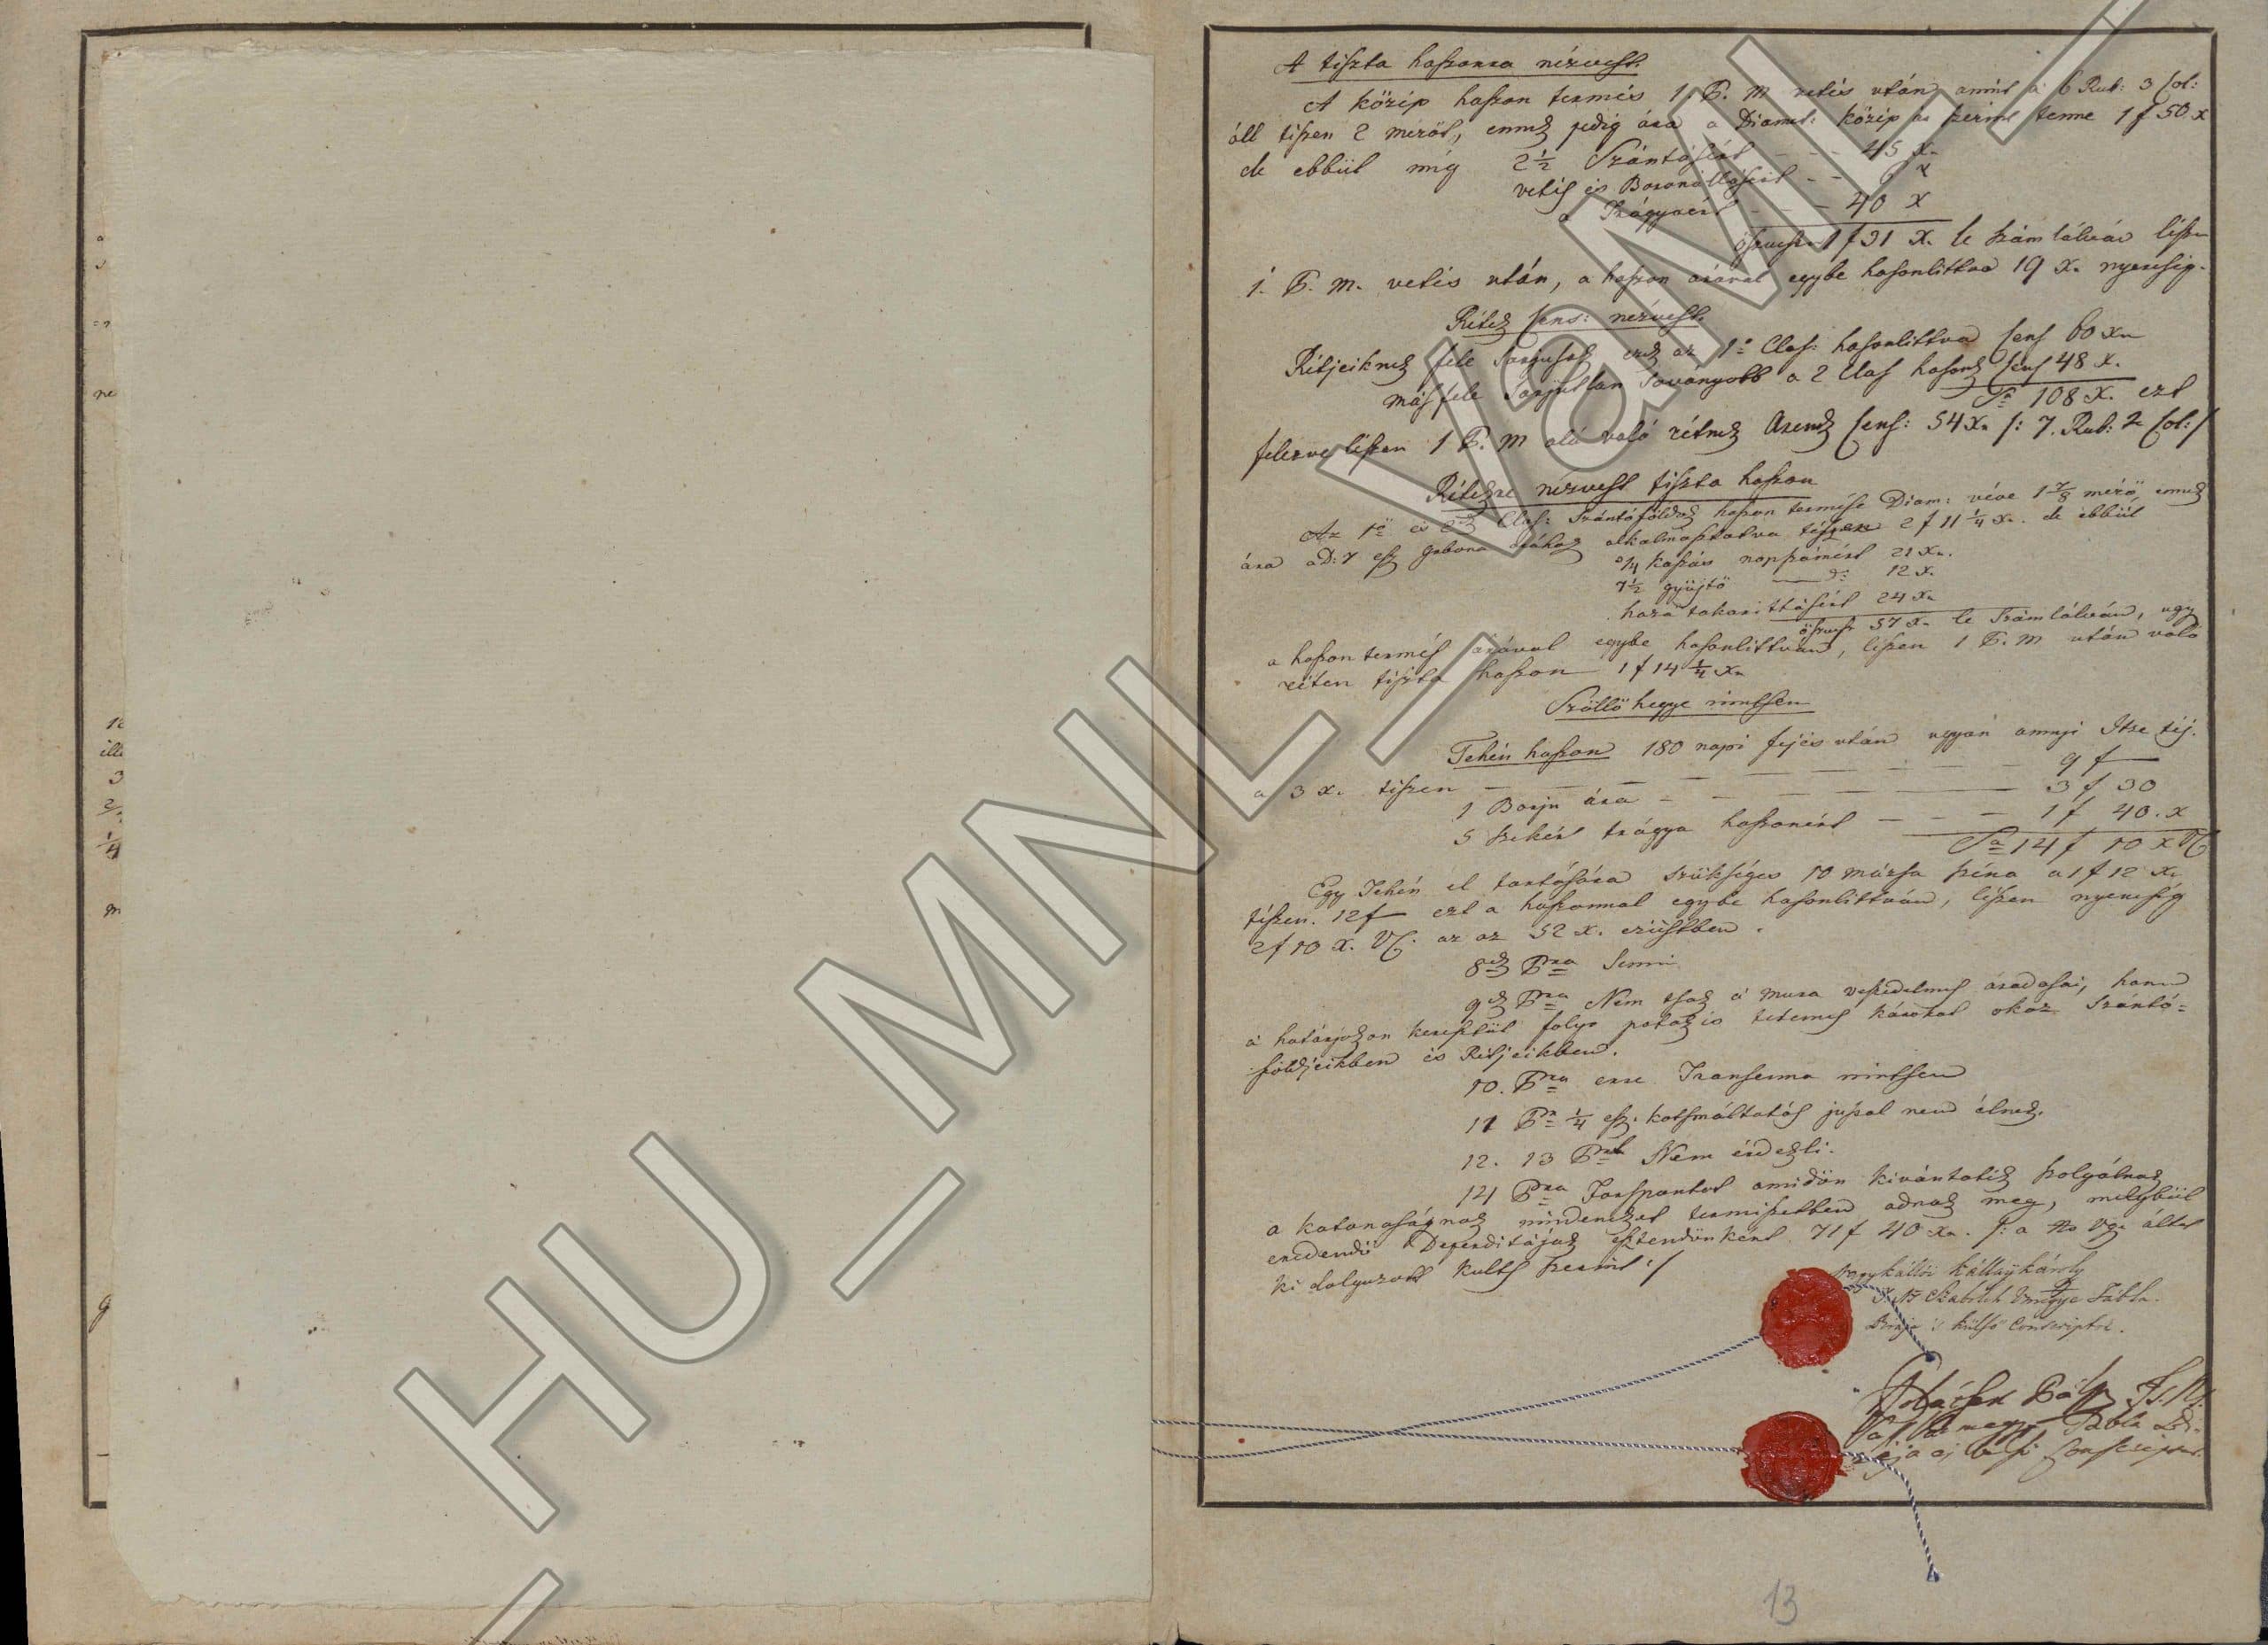 A tiszta haszonra nézvest.
A közép haszon termés 1 P. M vetés után amint a 6 Rub: 3 Col:
áll tészen 2 mérőt, ennek pedig ára a Diamet: közép ár szerint tenne 1 f 50 x
de ebbül még 2½ Szántásért - - - 45 x.
vetés és Boronállásért - - 6 x
a Trágyáért - - - 40 x
öszvessen 1 f 31 x. le számlálván lészen
1. P. M. vetés után, a haszon árával egybe hasonlittva 19 x. nyereség.
Rétek Cens: nézvest.
Rétjeiknek fele Sarjusok ezek az 1ő Clas: hasonlittva Cens 60 xr
más fele Sarjutlan Savanyobb a 2 Clas hasonl Cens 48 x.
Sa 108 x. ezt
felezve lészen 1 P. M alá való rétnek Arend Cens: 54 xr /: 7. Rub: 2 Col:/
Rétekre nézvest tiszta haszon
Az 1ő és 2dik Clas: Szántóföldek haszon termése Diam: véve 1 7/8 mérő, ennek
ára a D: 7 esz gabona árához alkalmaztatva tészen 2 f 11¼ xr. de ebbül
¾ kaszás nappszámért 21 xr.
1½ gyüjtő — d: 12 x.
haza takarittásért 24 xr
öszvess 57 x. le Számlálván, ugy
a haszon termés árával egybe hasonlittván, lészen 1 P. M után való
réten tiszta haszon 1 f 14¼ xr
Szöllő hegye nintsen
Tehén haszon 180 napi fejés után ugyan annyi Itze téj.
a 3 x. tészen — — — — — — — 9 f —
1 Borju ára — — — — — — 3 f 30
5 szekér trágya haszonért — — — 1 f 40. x
Sa 14 f 10 x VC
Egy Tehén el tartására szükséges 10 mázsa széna a 1 f 12 xr
tészen. 12 f — ezt a haszonnal egybe hasonlittván, lészen nyereség
2 f 10 x. VC. az az 52 x. ezüstben.
8dik Pra Semmi
9dik Pra Nem tsak a Mura veszedelmes áradásai, hanem
a határjokon keresztül folyo patak is tetemes károkat okoz Szántó=
földjeikben és Rétjeikben.
10. Pra erre Transenna nintsen
11 Pra ¼ esz. kortsmáltatás jussal nem élnek.
12. 13 Prat Nem érdekli.
14 Pra Forspontot amidőn kivántatik szolgálnak
a katonaságnak mindeneket termisetben adnak meg, melybül
eredendő Deperditájok esztendőnként 71 f 40 xr. /: a Ns Vgye által
ki dolgozott kults szerint :/
Nagykállói Kállay Károly
T. N. Szabolts Vmegye Tábla
Birája 's külső Conscriptor.
Pál
Vas Vármegye Tábla Bi-
rája és belső Conscriptor.
13
HU_MNL_VaML_